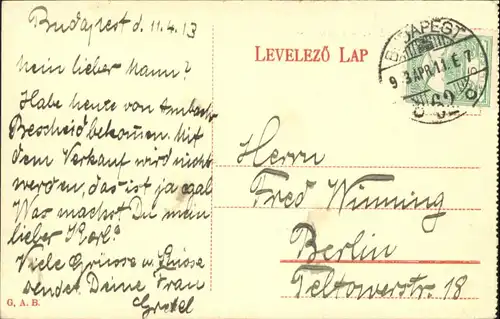 Budapest d. 11.4.13
LEVELEZŐ LAP
BUDAPEST
9 3 APR.11 E 7
62
Mein lieber Mann!
Habe heute von
Bescheid bekommen. Mit
dem Verkauf wird nichts
werden, das ist ja egal
Was machst Du mein
lieber Kerl?
Viele Grüsse u. Küsse
sendet Deine Frau
Gretel
Herrn
Fred Winning
Berlin
Teltowerstr. 18
G. A. B.